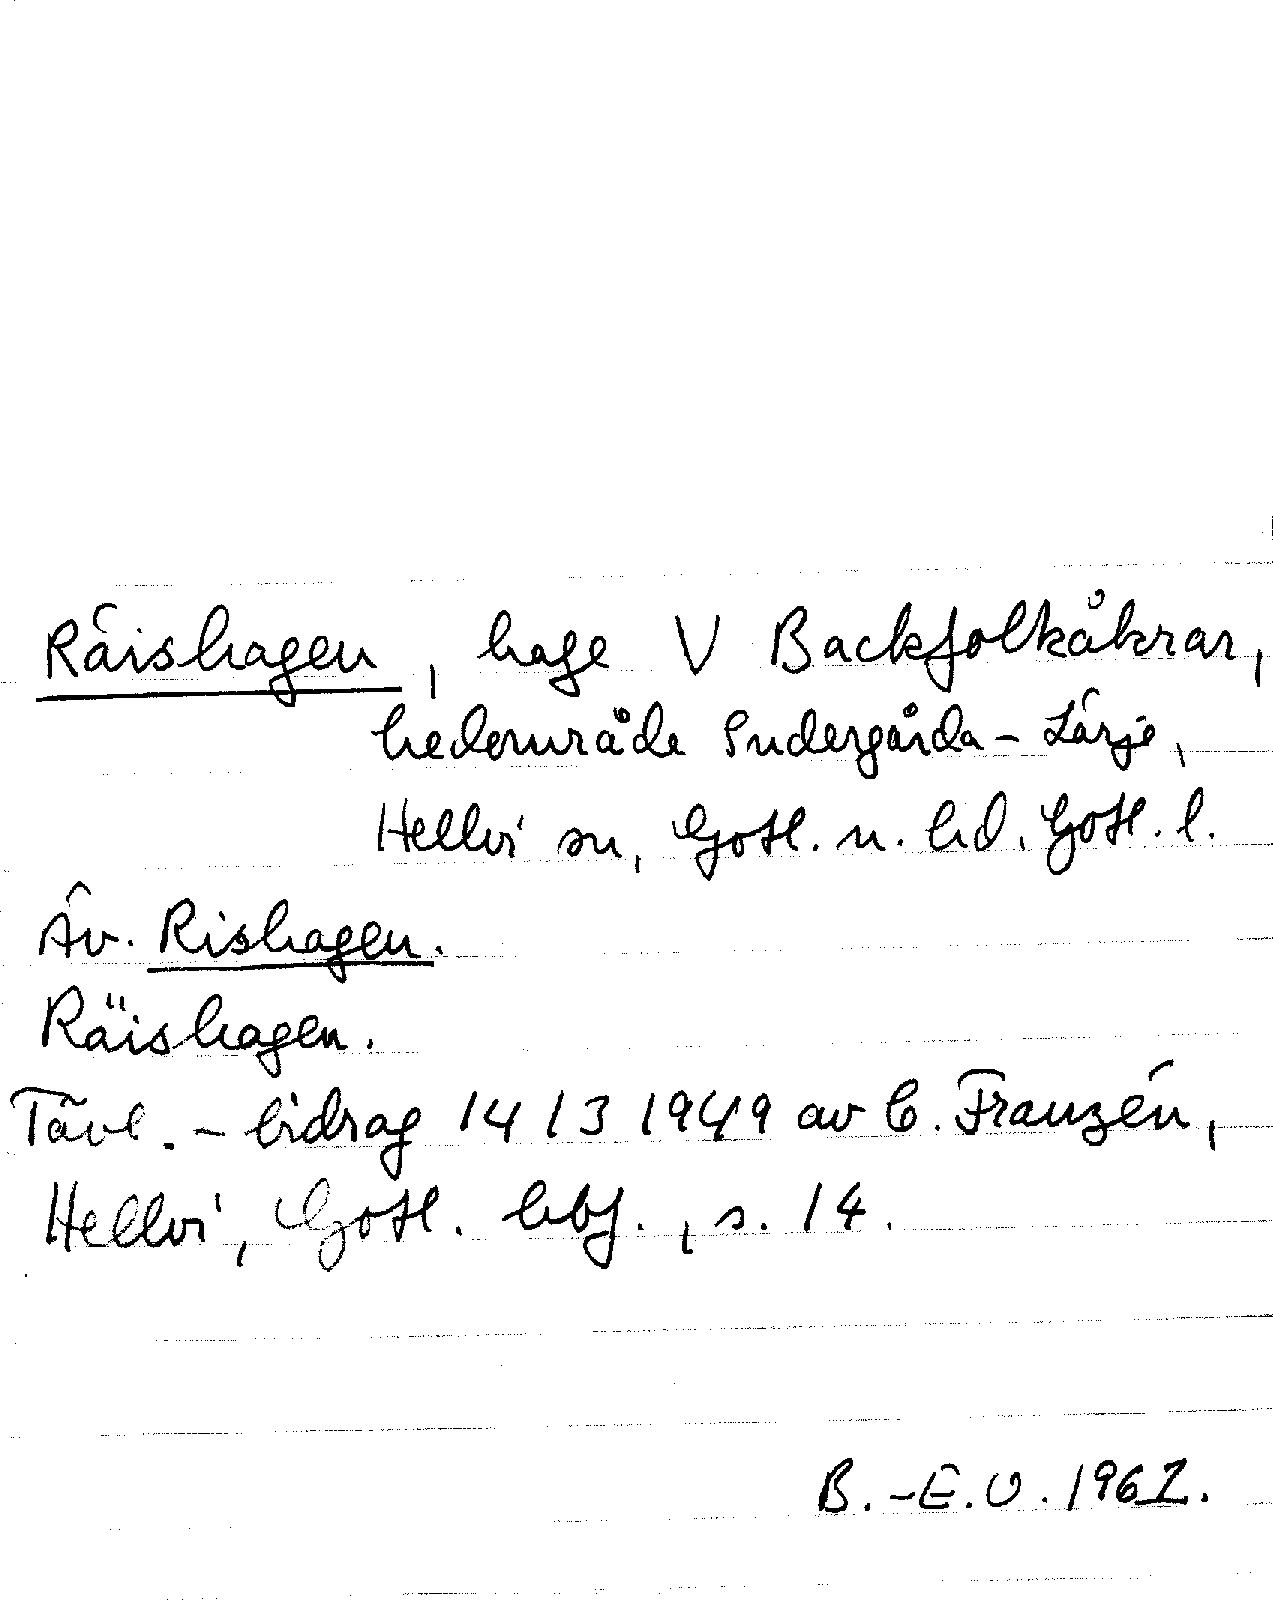 Räishagen, hage V Backfolkåkrar,
hedområde Sudergårda - Lärje,
Hellvi sn, Gotl. n. hd. Gotl. l.
Äv. Rishagen.
Räishagen.
Tävl. - bidrag 14/3 1949 av C. Franzén,
Hellvi, Gotl. hbf., s. 14.
B.-E.O. 1962.